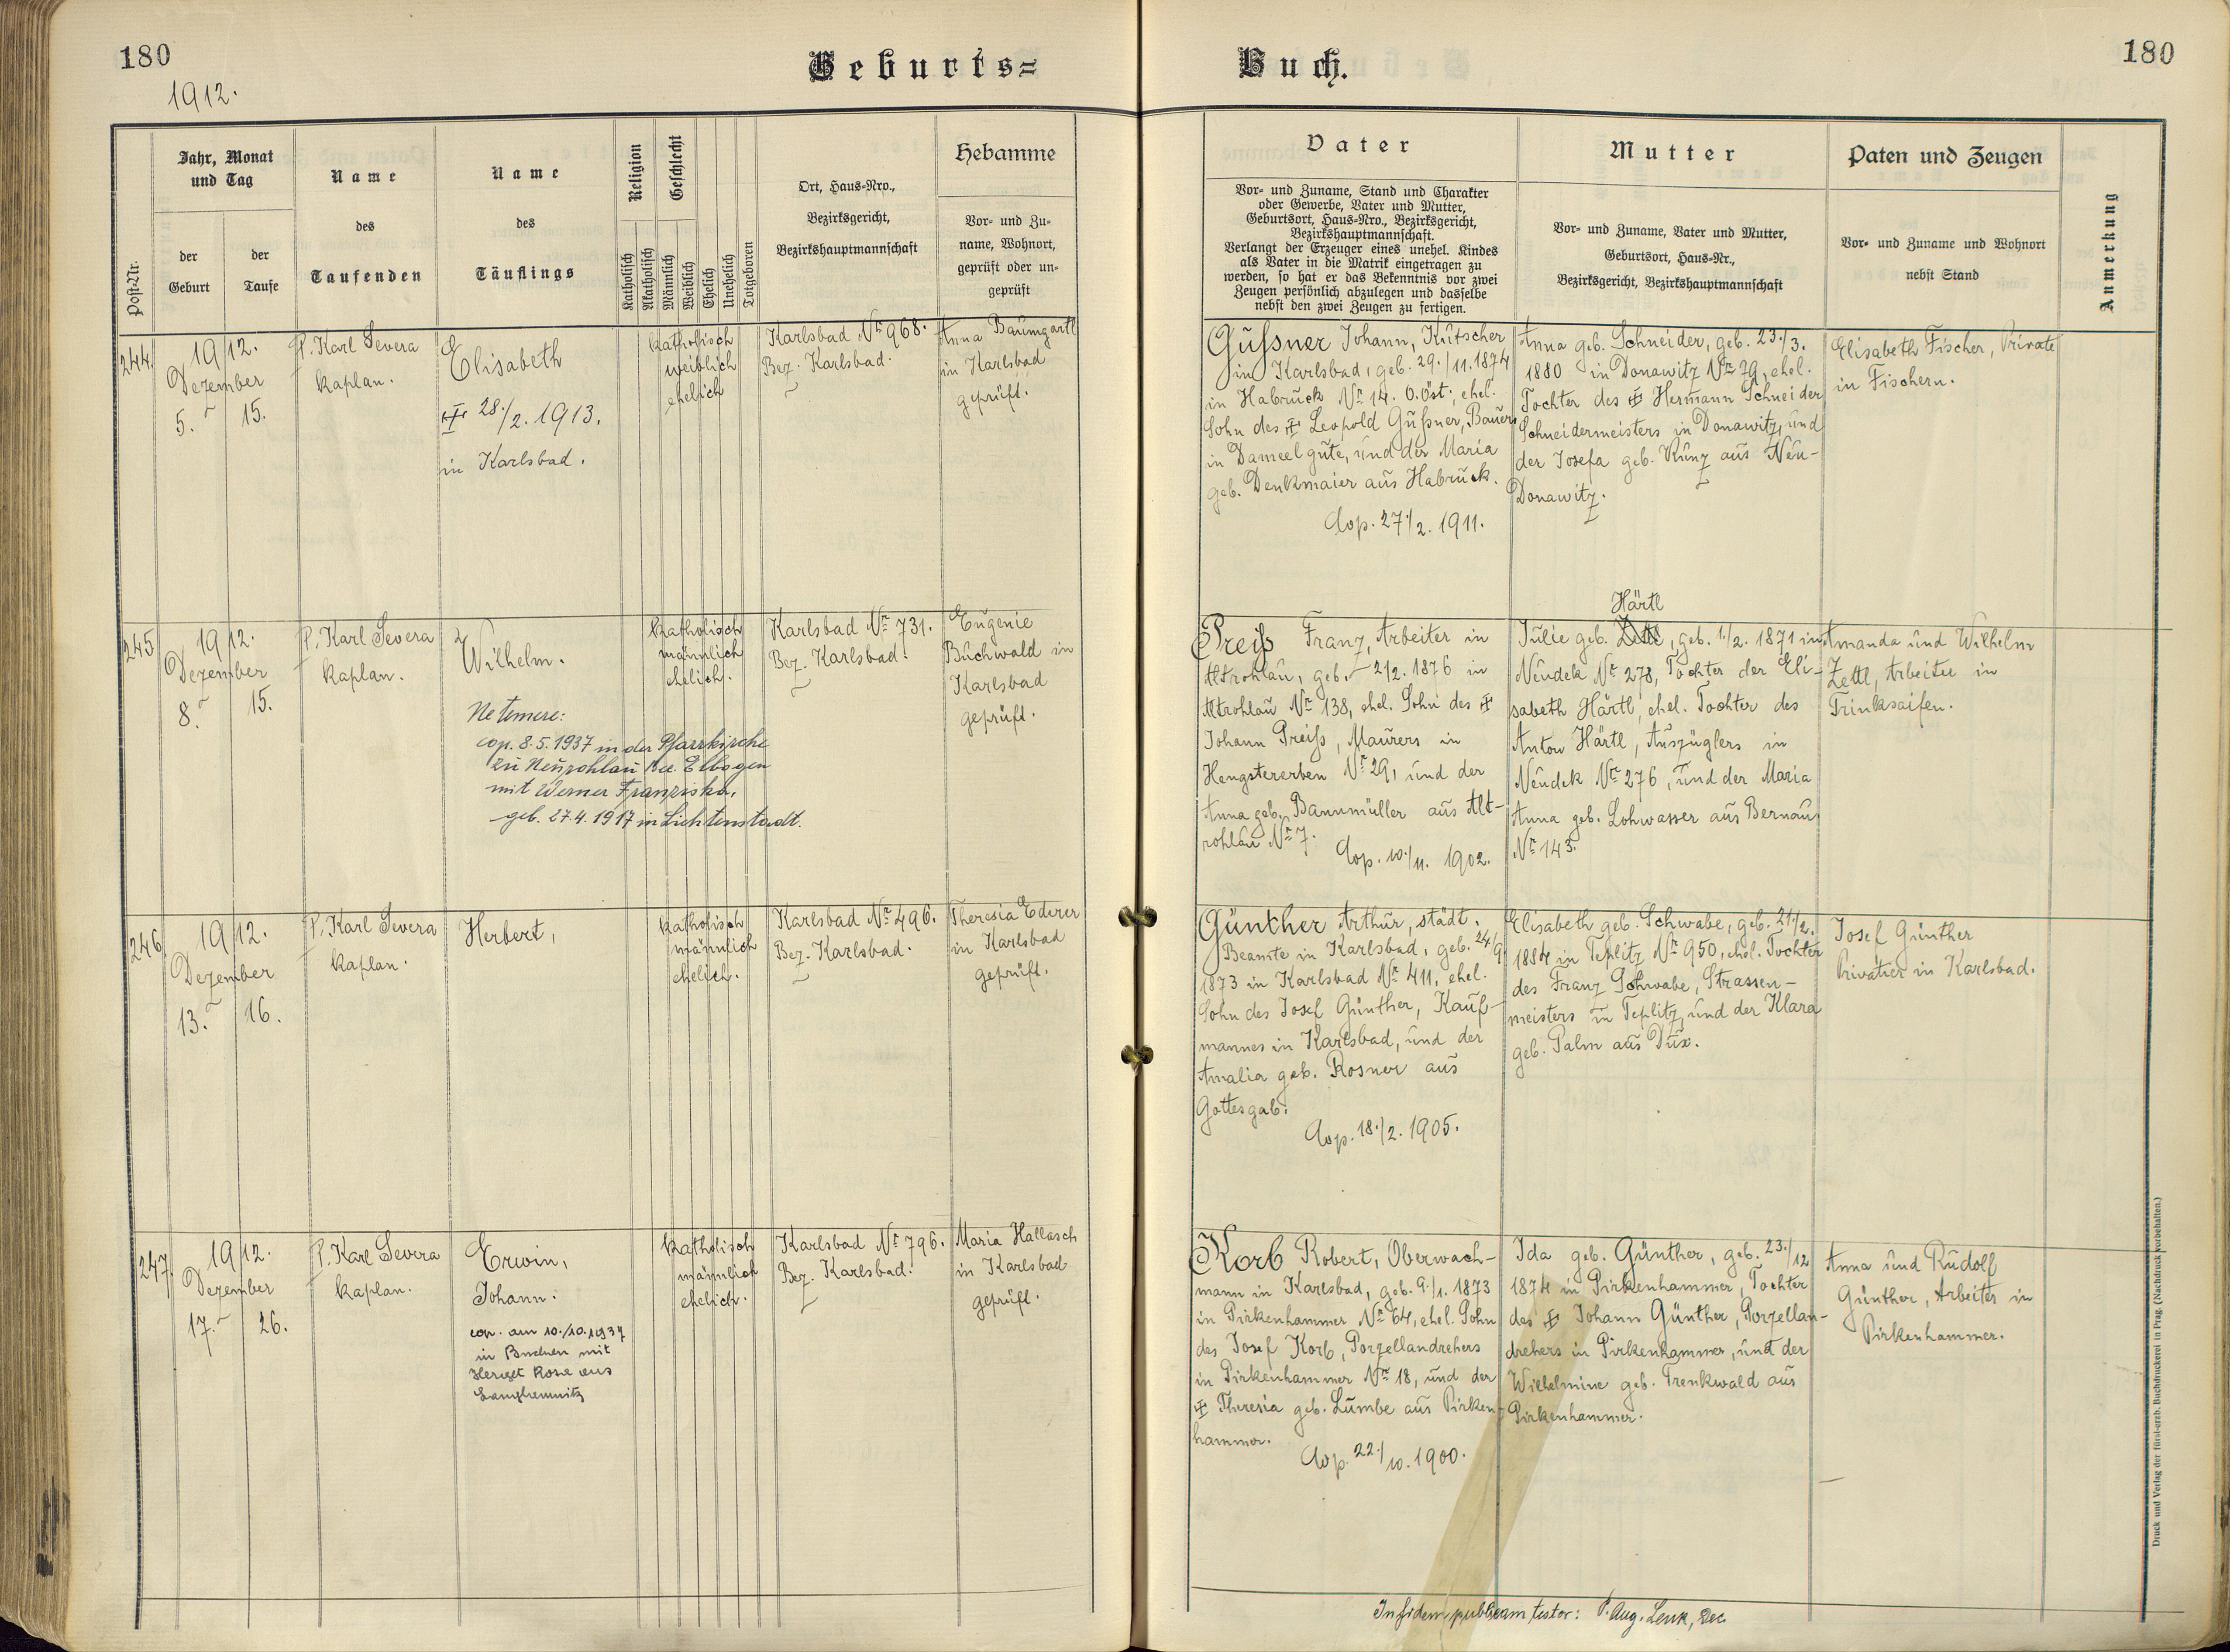 180
1912.
Geburts=
Buch.
180
Post-Nr.
Jahr, Monat
und Tag
der
Geburt
der
Taufe
Name
des
Taufenden
Name
des
Täuflings
Religion
Geschlecht
Katholisch
Akatholisch
Männlich
Weiblich
Ehelich
Unehelich
Totgeboren
Ort, Haus-Nro.,
Bezirksgericht,
Bezirkshauptmannschaft
Hebamme
Vor- und Zu-
name, Wohnort,
geprüft oder un-
geprüft
Vater
Vor- und Zuname, Stand und Charakter
oder Gewerbe, Vater und Mutter,
Geburtsort, Haus-Nro., Bezirksgericht,
Bezirkshauptmannschaft.
Verlangt der Erzeuger eines unehel. Kindes
als Vater in die Matrik eingetragen zu
werden, so hat er das Bekenntnis vor zwei
Zeugen persönlich abzulegen und dasselbe
nebst den zwei Zeugen zu fertigen.
Mutter
Vor- und Zuname, Vater und Mutter,
Geburtsort, Haus-Nr.,
Bezirksgericht, Bezirkshauptmannschaft
Paten und Zeugen
Vor- und Zuname und Wohnort
nebst Stand
Anmerkung
244.
1912.
Dezember
5. 15.
P. Karl Severa
Kaplan.
Elisabeth
28./2. 1913.
in Karlsbad.
katholisch
weiblich
ehelich
Karlsbad Nr 968.
Bez. Karlsbad.
Anna Baumgartl
in Karlsbad
geprüft.
Gußner Johann, Kutscher
in Karlsbad, geb. 29./11.1874
in Habruck Nr 14. O.Öst., ehel.
Sohn des Leopold Gußner, Bauers
in Dameelgute, und der Maria
geb. Denkmaier aus Habruck.
Cop. 27./2. 1911.
Anna geb. Schneider, geb. 23./3.
1880 in Donawitz Nr 29, ehel.
Tochter des Hermann Schneider
Schneidermeisters in Donawitz, und
der Josefa geb. Kunz aus Neu-
Donawitz.
Elisabeth Fischer, Private
in Fischern.
245
1912.
Dezember
8. 15.
P. Karl Severa
Kaplan.
Wilhelm.
Ne temere:
cop. 8.5.1937 in der Pfarrkirche
zu Neurohlau Bez. Elbogen
mit Werner Franziska,
geb. 27.4.1917 in Lichtenstadt.
katholisch
männlich
ehelich.
Karlsbad Nr 731.
Bez. Karlsbad.
Eugenie
Buchwald in
Karlsbad
geprüft.
Preiß Franz, Arbeiter in
Altrohlau, geb. 2/2. 1876 in
Altrohlau Nr 138, ehel. Sohn des
Johann Preiß, Maurers in
Hengstererben Nr 29, und der
Anna geb. Bannmüller aus Alt-
rohlau Nr 7.
Cop. 10./11. 1902.
Härtl
Julie geb. Zettl, geb. 1./2. 1871 in
Neudek Nr 278, Tochter der Eli-
sabeth Härtl, ehel. Tochter des
Anton Härtl, Auszüglers in
Neudek Nr 276, und der Maria
Anna geb. Lohwasser aus Bernau
Nr 143.
Amanda und Wilhelm
Zettl, Arbeiter in
Trinksaifen.
246
1912.
Dezember
13. 16.
P. Karl Severa
Kaplan.
Herbert,
katholisch
männlich
ehelich.
Karlsbad Nr 496.
Bez. Karlsbad.
Theresia Ederer
in Karlsbad
geprüft.
Günther Arthur, städt.
Beamte in Karlsbad, geb. 24/9.
1873 in Karlsbad Nr 411, ehel.
Sohn des Josef Günther, Kauf-
mannes in Karlsbad, und der
Amalia geb. Rosner aus
Gottesgab.
Cop. 18./2. 1905.
Elisabeth geb. Schwabe, geb. 21/2.
1884 in Teplitz Nr 950, ehel. Tochter
des Franz Schwabe, Strassen-
meisters in Teplitz, und der Klara
geb. Palm aus Dux.
Josef Günther
Privatier in Karlsbad.
247.
1912.
Dezember
17. 26.
P. Karl Severa
Kaplan.
Erwin,
Johann.
cop. am 10./10.1937
in Buchen mit
Herget Rosa aus
Langhemnitz
katholisch
männlich
ehelich.
Karlsbad Nr 796.
Bez. Karlsbad.
Maria Hallasch
in Karlsbad
geprüft.
Korb Robert, Oberwach-
mann in Karlsbad, geb. 9./1. 1873
in Pirkenhammer Nr 64, ehel. Sohn
des Josef Korb, Porzellandrehers
in Pirkenhammer Nr 18, und der
Theresia geb. Lumbe aus Pirken-
hammer.
Cop. 22./10. 1900.
Ida geb. Günther, geb. 23./12
1874 in Pirkenhammer, Tochter
des Johann Günther, Porzellan-
drehers in Pirkenhammer, und der
Wilhelmine geb. Trenkwald aus
Pirkenhammer.
Anna und Rudolf
Günther, Arbeiter in
Pirkenhammer.
In fidem publicam testor: P. Aug. Lenk, Dec
Druck und Verlag der fürst-erzb. Buchdruckerei in Prag. (Nachdruck vorbehalten.)